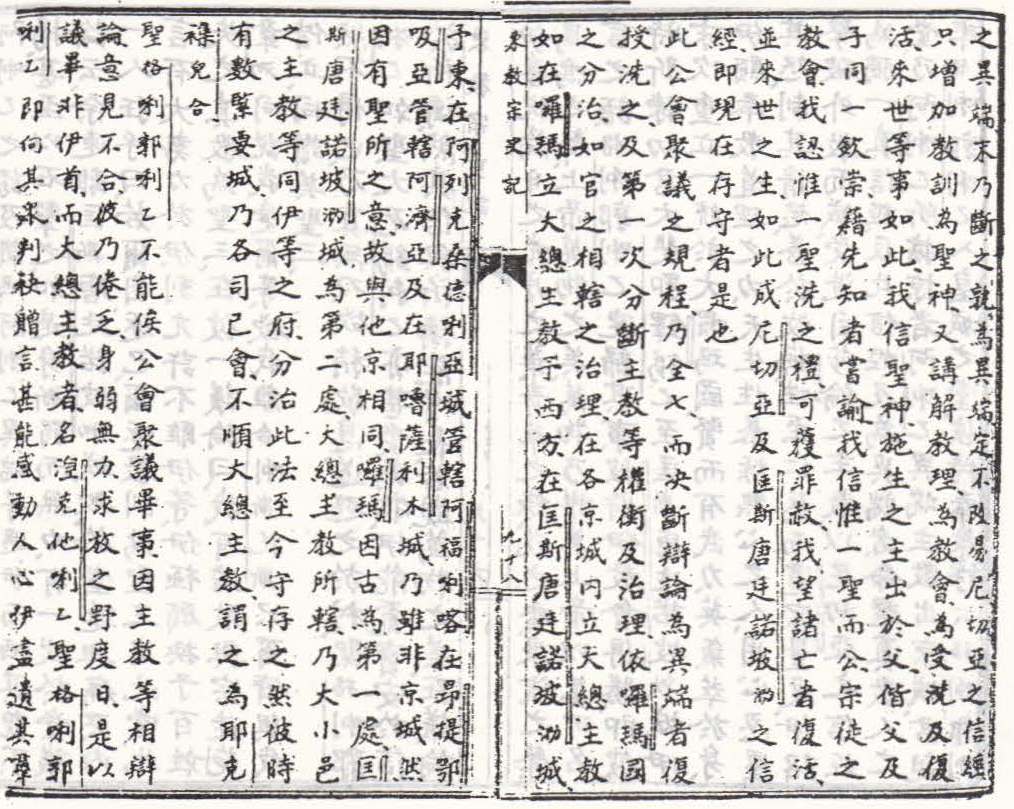 之異端末乃斷之孰為異端定不改易尼切亞之信經
只增加教訓為聖神又講解教理為教會為受洗及復
活來世等事如此我信聖神施生之主出於父偕父及
子同一欽崇藉先知者嘗諭我信惟一聖而公宗徒之
教會我認惟一聖洗之禮可獲罪赦我望諸亡者復活
並來世之生如此成尼切亞及匡斯唐廷諾坡泐之信
經即現在存守者是也
此公會聚議之規程乃全七而決斷辯論為異端者復
授洗之及第一次分斷主教等權衡及治理依囉瑪國
之分治如官之相轄之治理在各京城內立大總主教
如在囉瑪立大總主教于西方在匡斯唐廷諾坡泐城
東教宗史記
九十八
于東在阿列克桑德唎亞城管轄阿福唎喀在昂提鄂
吸亞管轄阿濟亞及在耶嚕薩利木城乃雖非京城然
因有聖所之意故與他京相同囉瑪因古為第一處匡
斯唐廷諾坡泐城為第二處大總主教所轄乃大小邑
之主教等同伊等之府分治此法至今守存之然彼時
有數緊要城乃各司己會不順大總主教謂之為耶克
襍兒合
聖格唎郭利乙不能俟公會聚議畢事因主教等相辯
論意見不合彼乃倦乏身弱無力求放之野度日是以
議畢非伊首而大總主教者名湼克他唎乙聖格唎郭
唎乙即向其眾判袂贈言甚能感動人心伊盡遺其